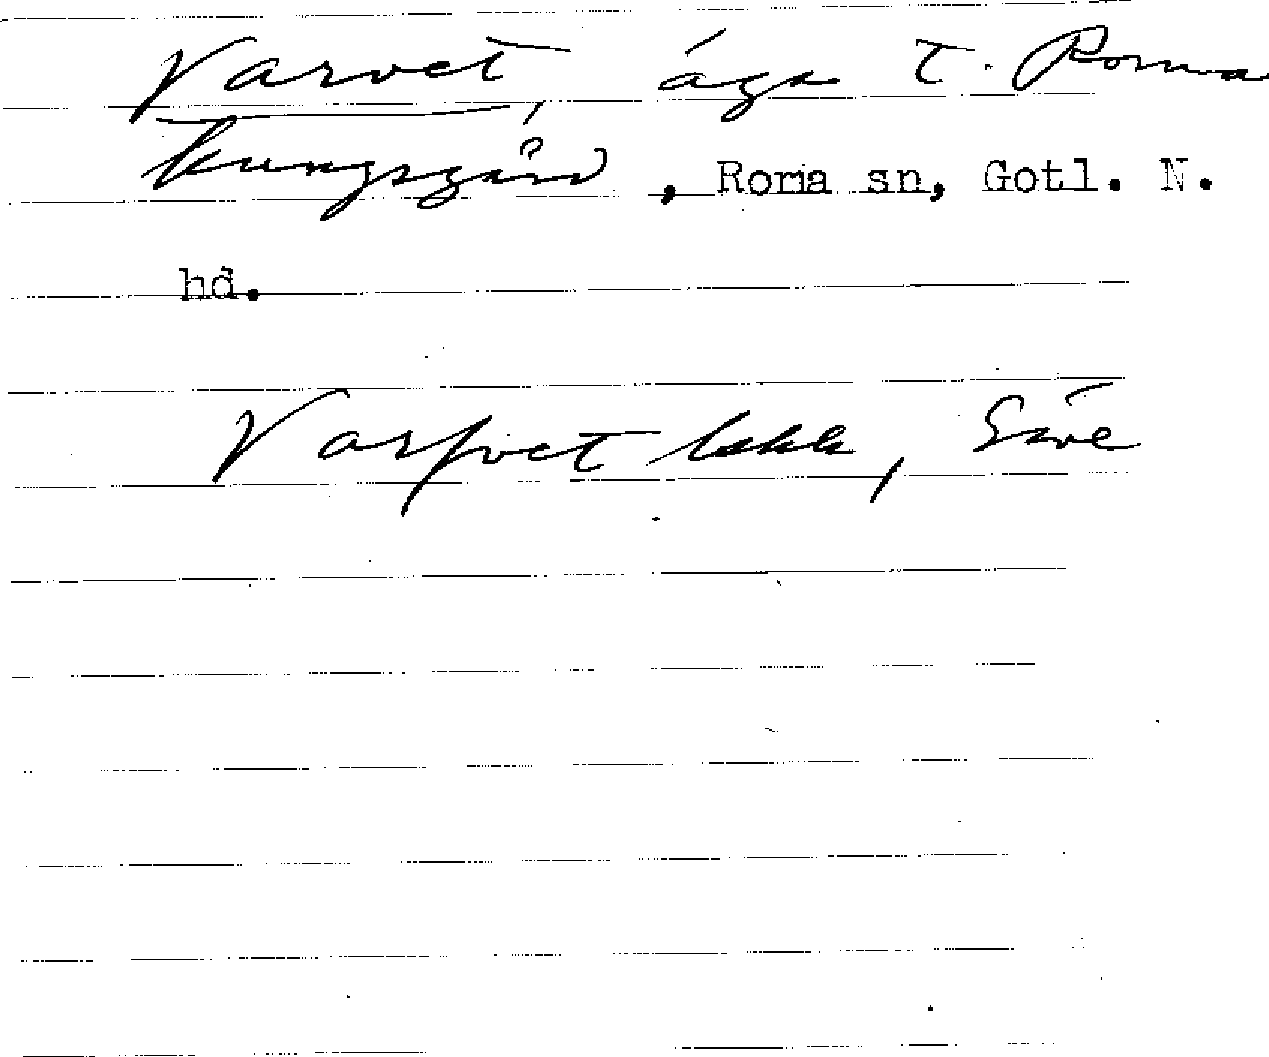 Varvet, äga t. Roma
kungsgård, Roma sn, Gotl. N.
hd.
Varfvet, Säve